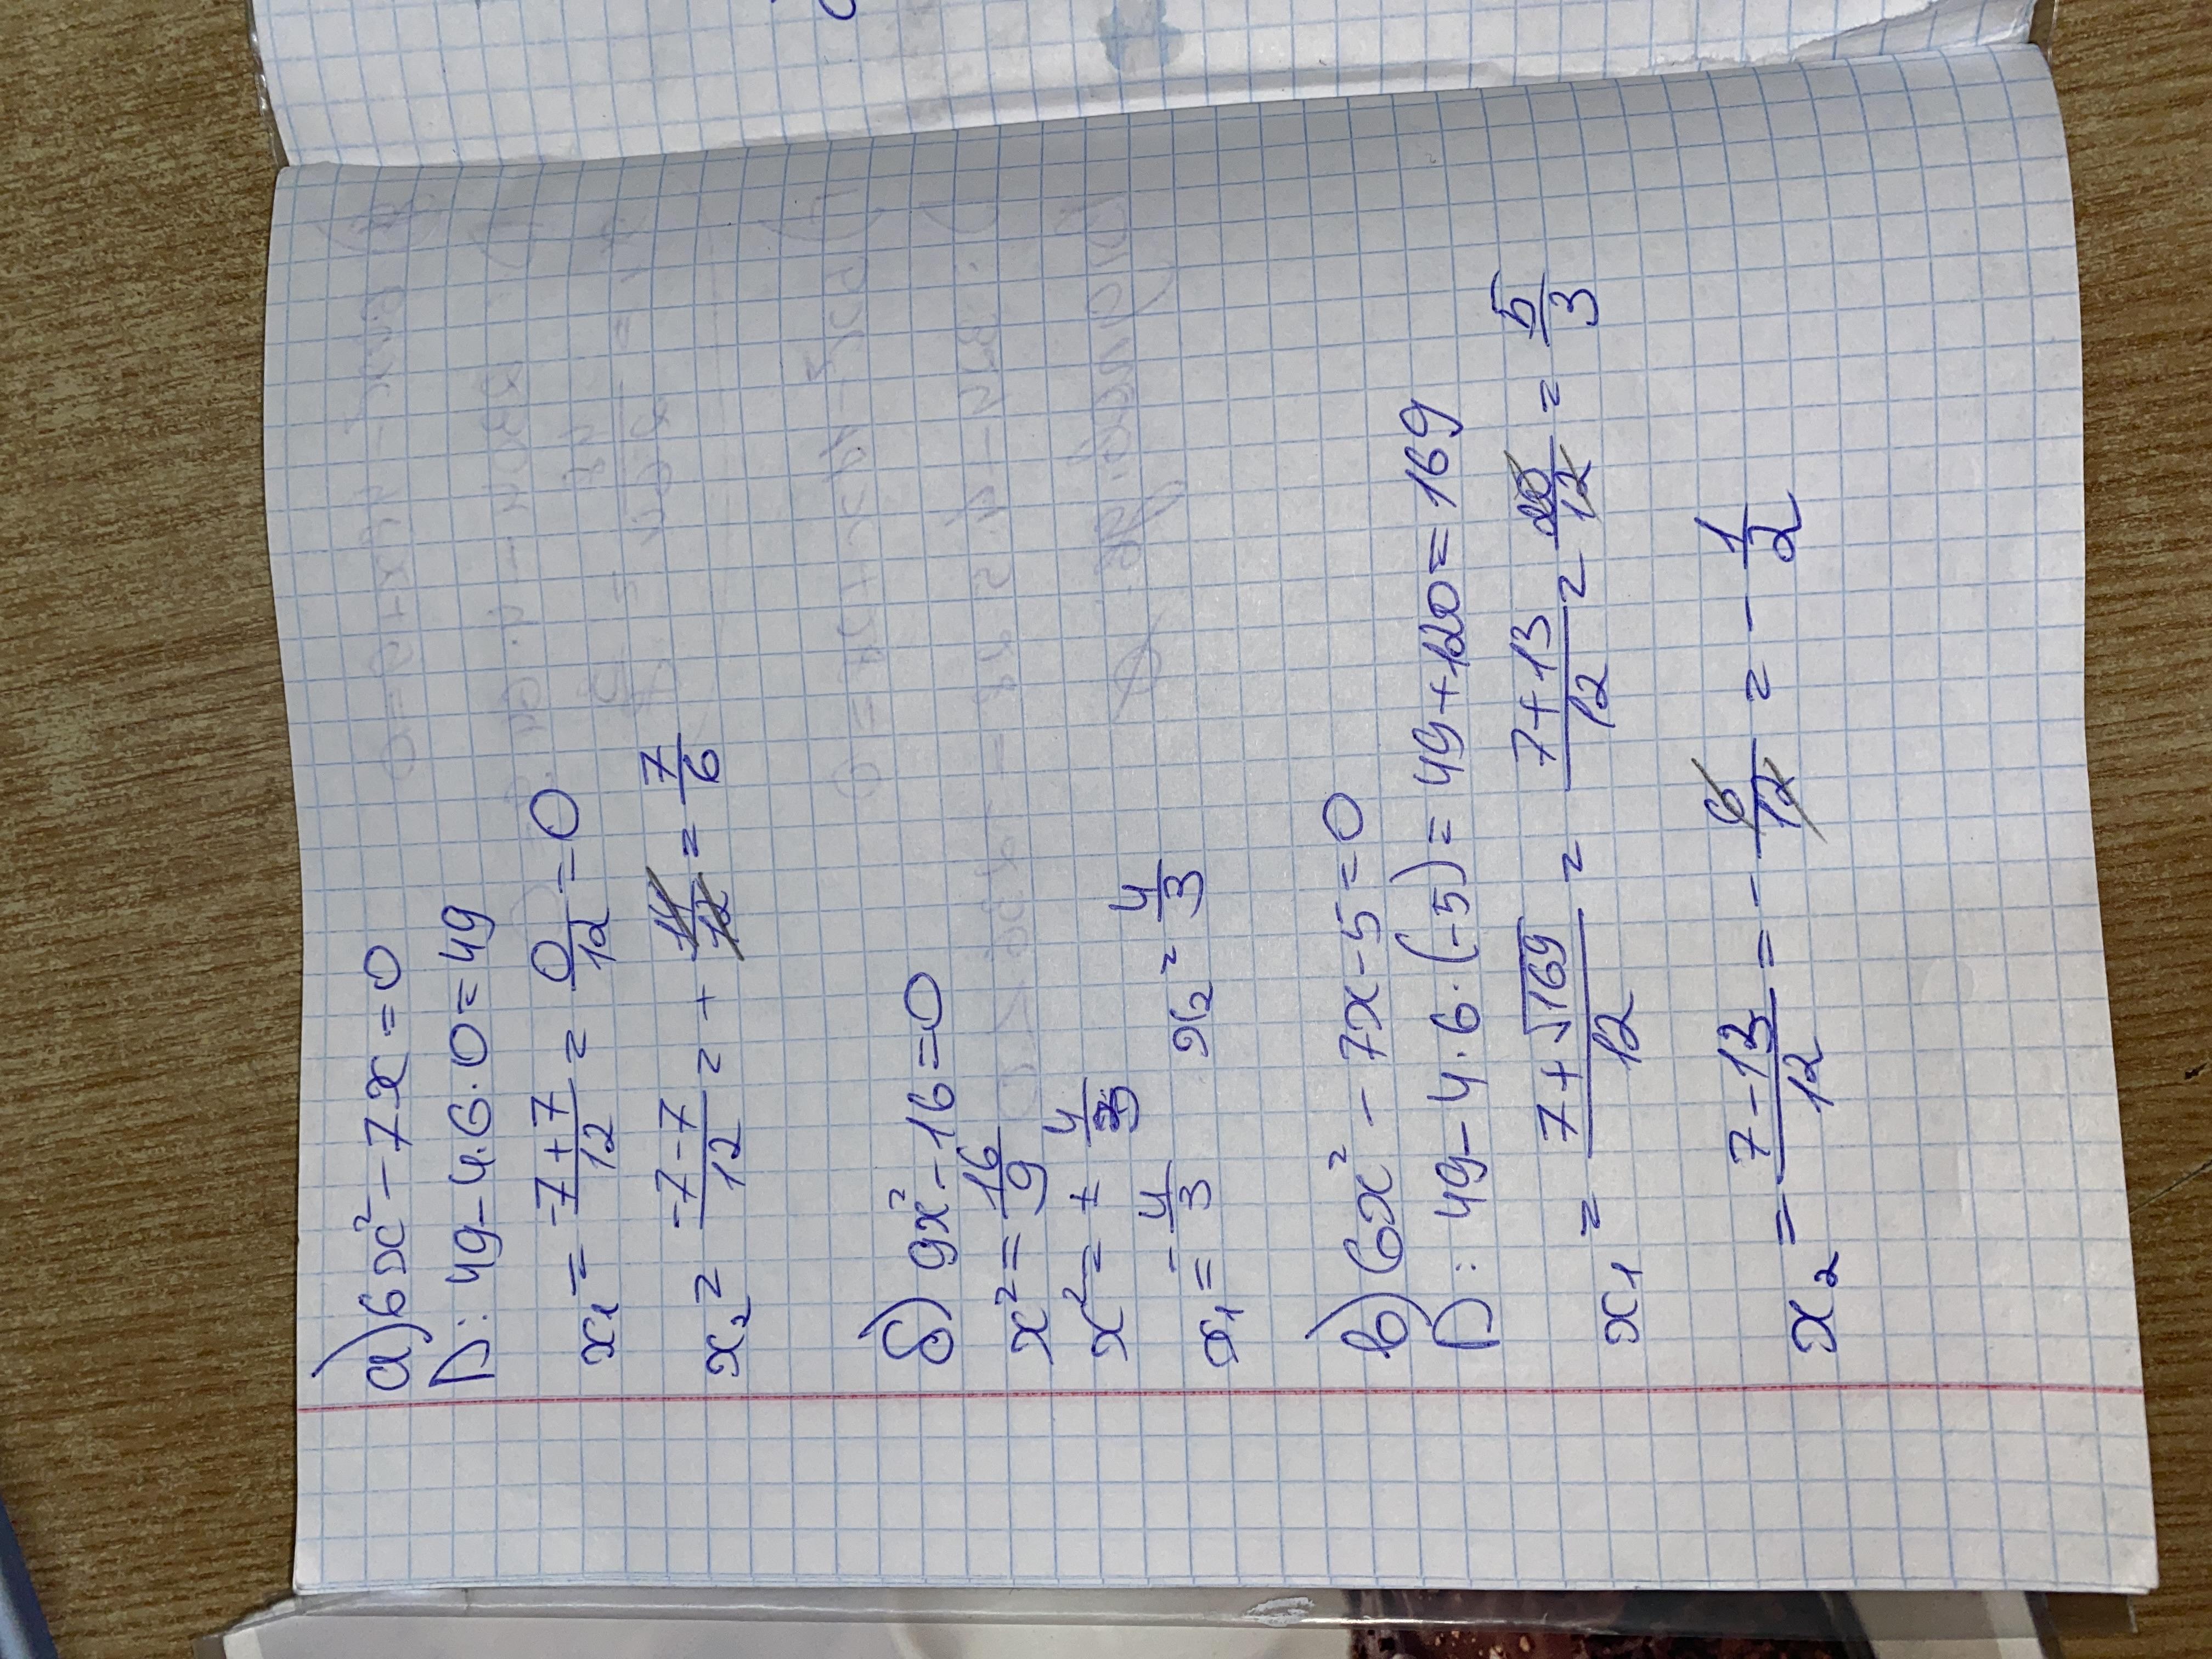 а) 6x² - 7x = 0
D: 49 - 4·6·0 = 49
x₁ = -7+7/12 = 0/12 = 0
x₂ = -7-7/12 = + 14/12 = 7/6
б) 9x² - 16 = 0
x² = 16/9
x² = ± 4/3
x₁ = -4/3 x₂ = 4/3
в) 6x² - 7x - 5 = 0
D: 49 - 4·6·(-5) = 49 + 120 = 169
x₁ = 7+√169/12 = 7+13/12 = 20/12 = 5/3
x₂ = 7-13/12 = - 6/12 = - 1/2